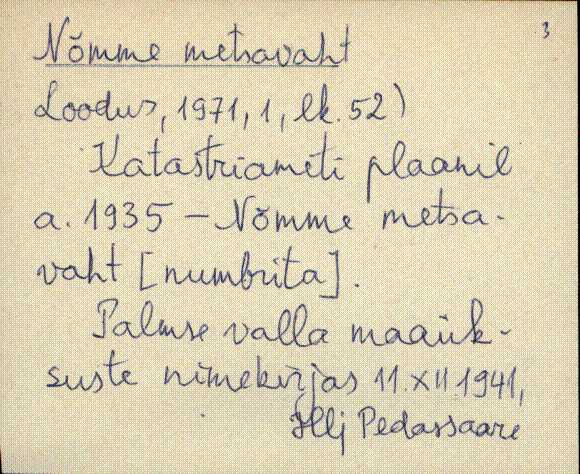 3
Nõmme metsavaht
Loodus, 1971, 1, lk. 52)
Katastriameti plaanil
a. 1935 – Nõmme metsa-
vaht [numbrita].
Palmse valla maaük-
suste nimekirjas 11.XII.1941,
Illj Pedassaare